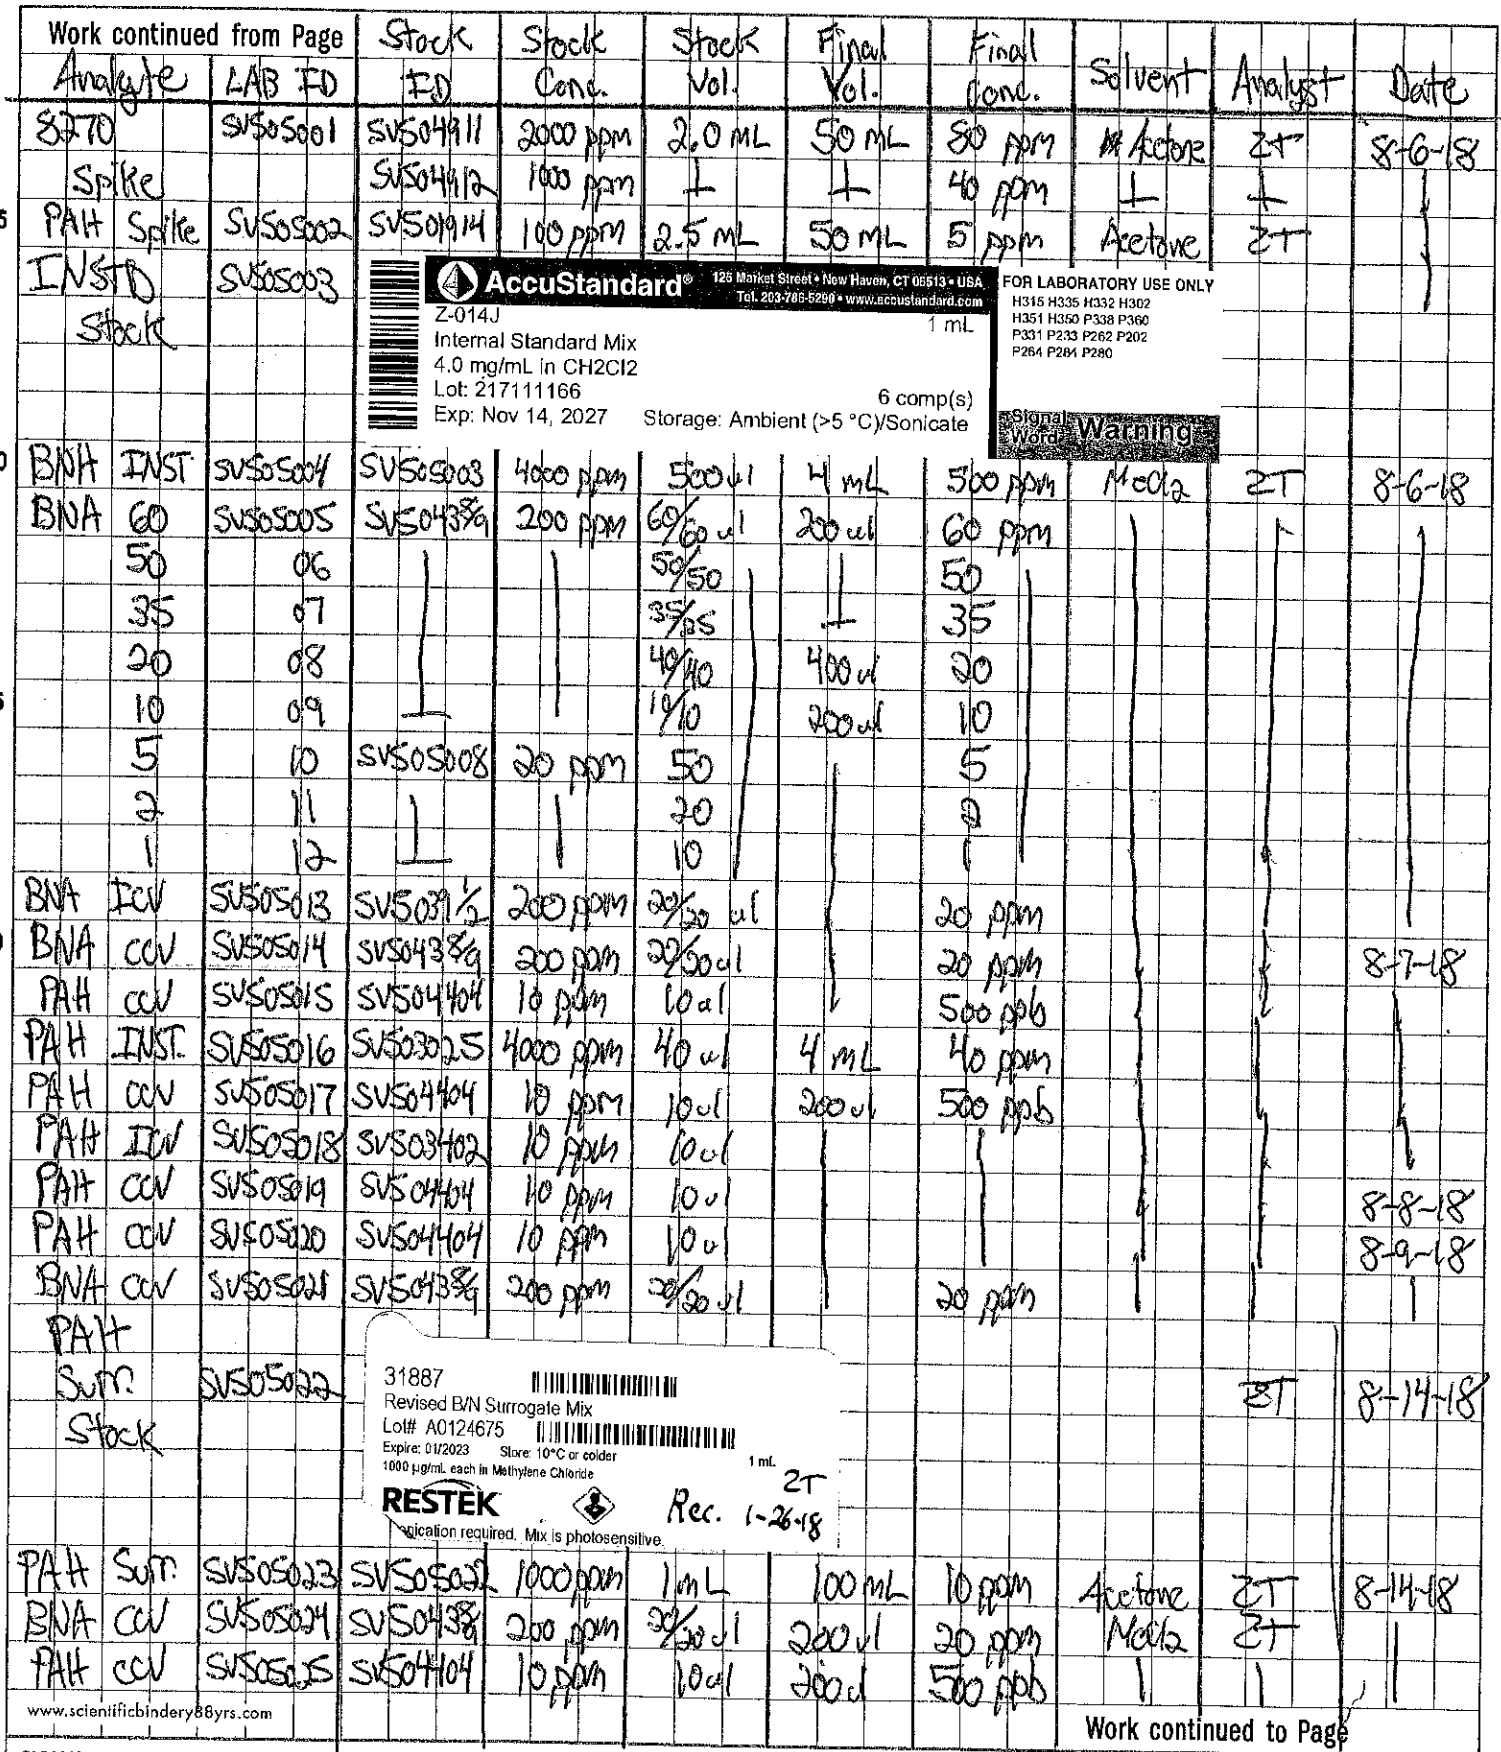 Work continued from Page
Stock Stock Stock Final Final
Analyte LAB ID ID Conc. Vol. Vol. Conc. Solvent Analyst Date
8270 SVS05001 SVS04911 2000 ppm 2.0 mL 50 mL 80 ppm Acetone ZT 8-6-18
Spike SVS04912 1000 ppm 40 ppm
5 PAH Spike SVS05002 SVS01914 100 ppm 2.5 mL 50 mL 5 ppm Acetone ZT
INSTD SVS05003
Stock
AccuStandard® 125 Market Street • New Haven, CT 06513 • USA
Tel. 203-786-5290 • www.accustandard.com
Z-014J 1 mL
Internal Standard Mix
4.0 mg/mL in CH2Cl2
Lot: 217111166 6 comp(s)
Exp: Nov 14, 2027 Storage: Ambient (>5 °C)/Sonicate
FOR LABORATORY USE ONLY
H315 H335 H332 H302
H351 H350 P338 P360
P331 P233 P262 P202
P264 P281 P280
Signal Word: Warning
0 BNA INST. SVS05004 SVS05003 4000 ppm 500 ul 4 mL 500 ppm MeCl2 ZT 8-6-18
BNA 60 SVS05005 SVS0438/9 200 ppm 60/60 ul 200 ul 60 ppm
50 06 50/50 50
35 07 35/35 35
20 08 40/40 400 ul 20
5 10 09 10/10 200 ul 10
5 10 SVS05008 20 ppm 50 5
2 11 20 2
1 12 10 1
BNA ICV SVS05013 SVS039 1/2 200 ppm 20/20 ul 20 ppm
0 BNA CCV SVS05014 SVS0438/9 200 ppm 20/20 ul 20 ppm 8-7-18
PAH CCV SVS05015 SVS04404 10 ppm 10 ul 500 ppb
PAH INST. SVS05016 SVS03025 4000 ppm 40 ul 4 mL 40 ppm
PAH CCV SVS05017 SVS04404 10 ppm 10 ul 200 ul 500 ppb
PAH ICV SVS05018 SVS03402 10 ppm 10 ul
PAH CCV SVS05019 SVS04404 10 ppm 10 ul 8-8-18
PAH CCV SVS05020 SVS04404 10 ppm 10 ul 8-9-18
BNA CCV SVS05021 SVS0438/9 200 ppm 20/20 ul 20 ppm
PAH
Surr. SVS05022 ZT 8-14-18
Stock
31887
Revised B/N Surrogate Mix
Lot# A0124675
Expire: 01/2023 Store: 10°C or colder
1000 µg/mL each in Methylene Chloride 1 mL
RESTEK
ZT
Rec. 1-26-18
required. Mix is photosensitive.
PAH Surr. SVS05023 SVS05022 1000 ppm 1 mL 100 mL 10 ppm Acetone ZT 8-14-18
BNA CCV SVS05024 SVS0438/9 200 ppm 20/20 ul 200 ul 20 ppm MeCl2 ZT
PAH CCV SVS05025 SVS04404 10 ppm 10 ul 200 ul 500 ppb
www.scientificbindery88yrs.com
Work continued to Page